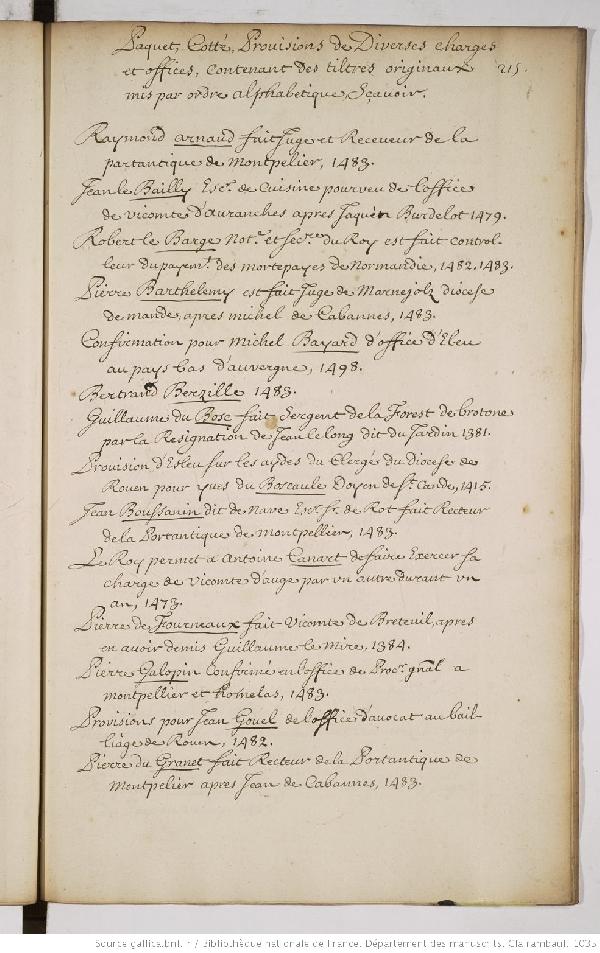 Paquet, Cotté, Provisions de Diverses charges
et offices, contenant des tiltres originaux 215.
mis par ordre alphabetique, Sçavoir.
Raymond arnaud fait Juge et Receveur de la
partantique de Montpelier, 1483.
Jean le Bailly Escr. de Cuisine pourveu de l'office
de vicomte d'Auranches apres Jaquen Burdelot 1479.
Robert le Barge Notre. et Secre. du Roy est fait control-
leur du paymt. des mortepayes de Normandie, 1482, 1483.
Pierre Barthelemy est fait Juge de Marnejolz diocese
de mande, apres michel de Cabannes, 1483.
Confirmation pour Michel Bayard d'office d'Eleu
au pays bas d'auvergne, 1498.
Bertrand Berzille 1483.
Guillaume du Bosc fait Sergent de la Forest de brotone
par la Resignation de Jean le long dit du Jardin 1381.
Provision d'Esleu sur les aydes du Clergé du Diocese de
Rouen pour yues du Boscaule Doyen de St. Cande, 1415.
Jean Boussanin dit de Nave Escr. Sr. de Rot fait Recteur
de la Portantique de Montpellier, 1483.
Le Roy permet a Antoine Canart de faire Exercer sa
charge de vicomte d'auge par vn autre durant vn
an, 1473.
Pierre des Fourneaux fait Vicomte de Breteuil, apres
en avoir demis Guillaume le Mire, 1384.
Pierre Galopin Confirmé en l'office de Procr. gnal a
montpellier et Homelas, 1483.
Provisions pour Jean Gouel de l'office d'avocat au bail-
liage de Rouen, 1482.
Pierre du Granet fait Recteur de la Portantique de
Montpelier apres Jean de Cabannes, 1483.
Source gallica.bnf.fr / Bibliothèque nationale de France. Département des manuscrits. Clairambault 1035